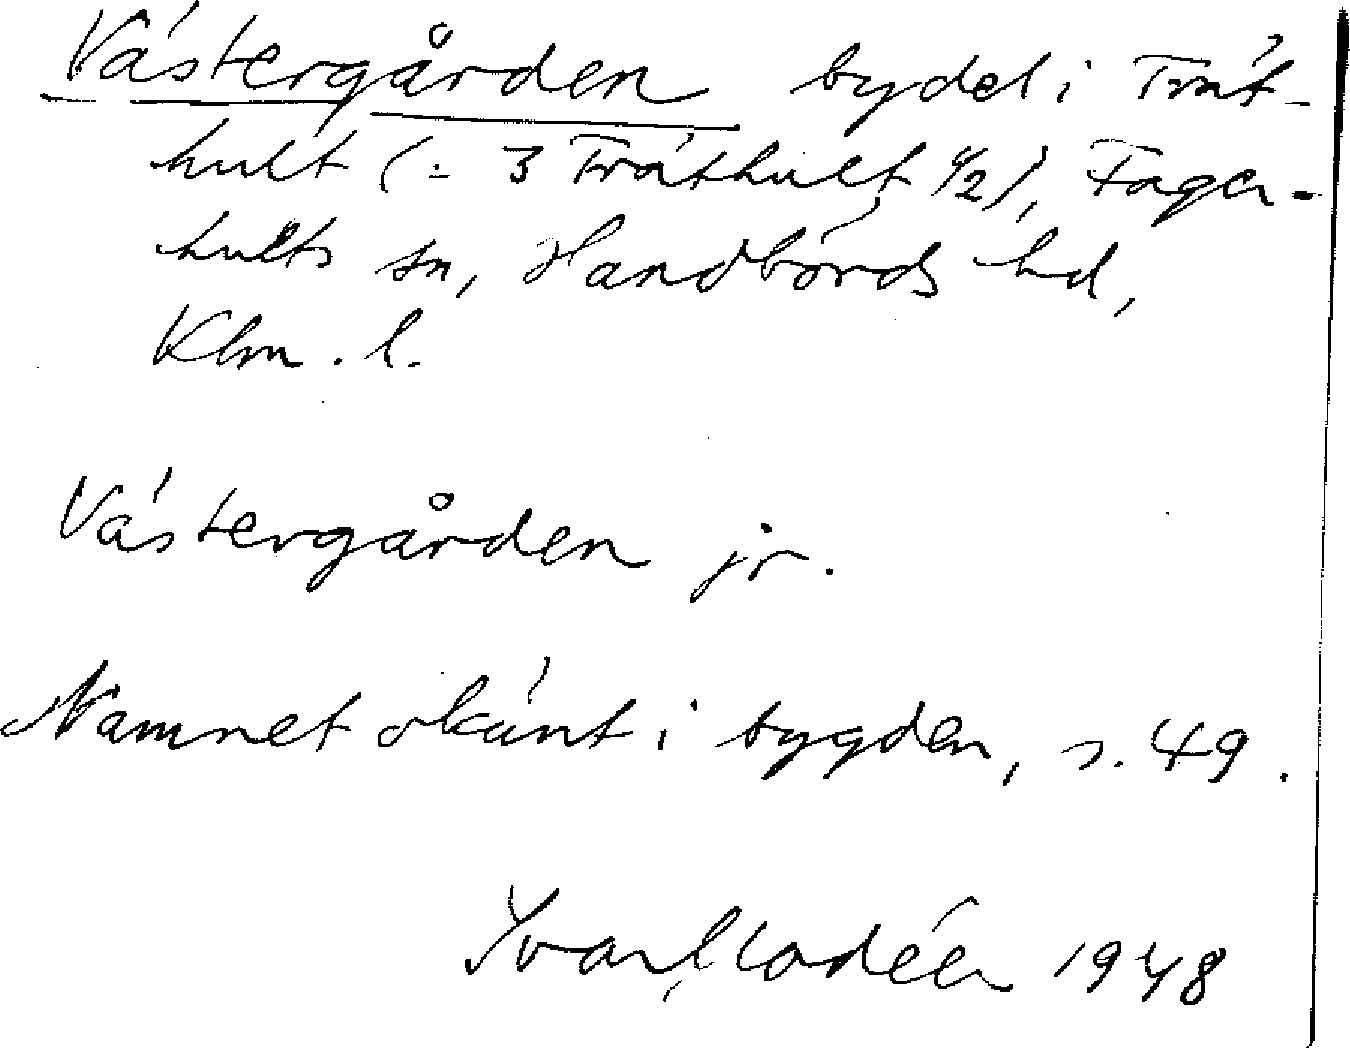 Västergården bydel i Trät-
hult (= 3 Träthult 1/2), Fager-
hults sn, Handbörds hd,
Klm. l.
Västergården jr.
Namnet okänt i bygden, s. 49.
Yvar Modéer 1948